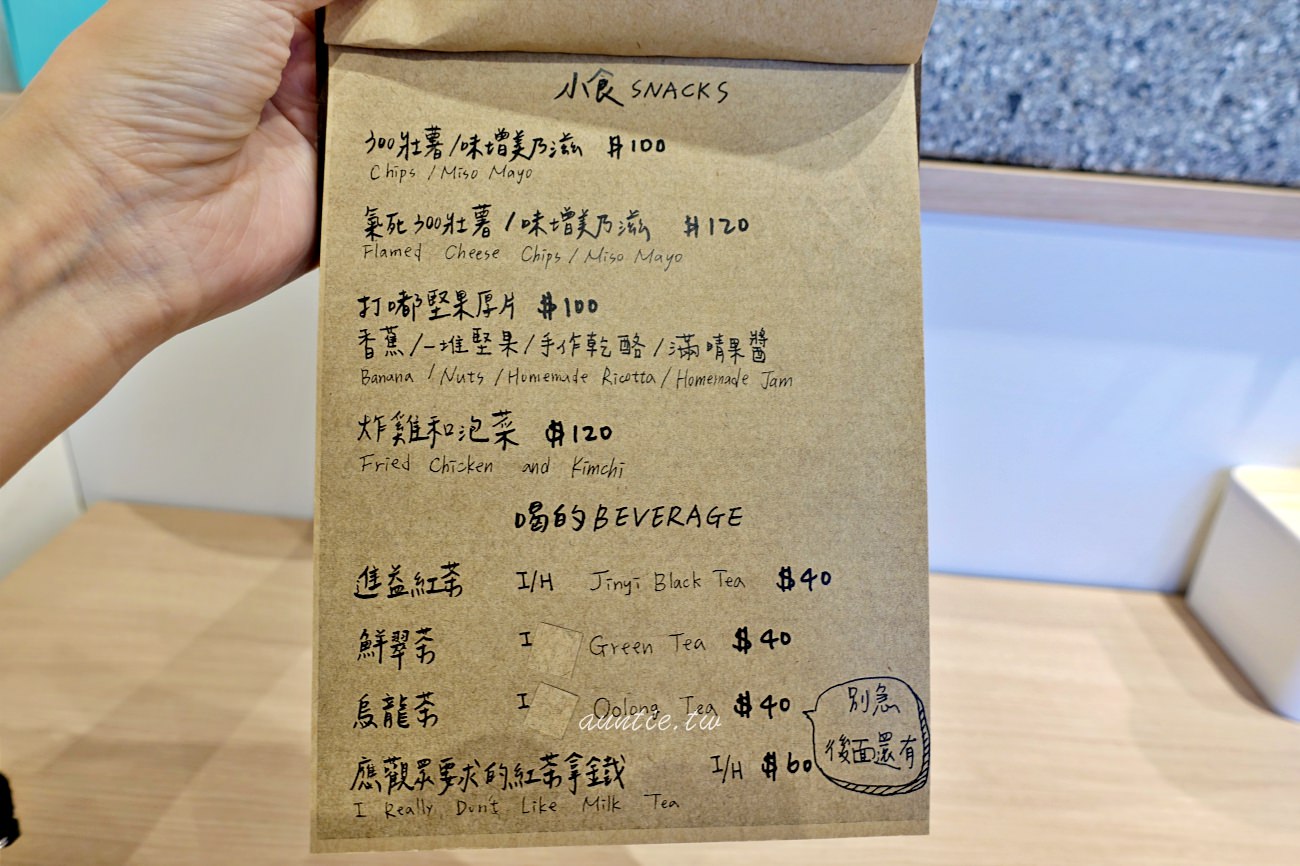 小食 SNACKS
300壯薯/味增美乃滋 $100
Chips / Miso Mayo
氣死300壯薯/味增美乃滋 $120
Flamed Cheese Chips / Miso Mayo
打嘟堅果厚片 $100
香蕉/一堆堅果/手作乾酪/滿晴果醬
Banana / Nuts / Homemade Ricotta / Homemade Jam
炸雞和泡菜 $120
Fried Chicken and Kimchi
喝的 BEVERAGE
進益紅茶 I/H Jinyi Black Tea $40
鮮翠茶 I Green Tea $40
烏龍茶 I Oolong Tea $40
auntie.tw
別急
後面還有
應觀眾要求的紅茶拿鐵 I/H $60
I Really Don't Like Milk Tea